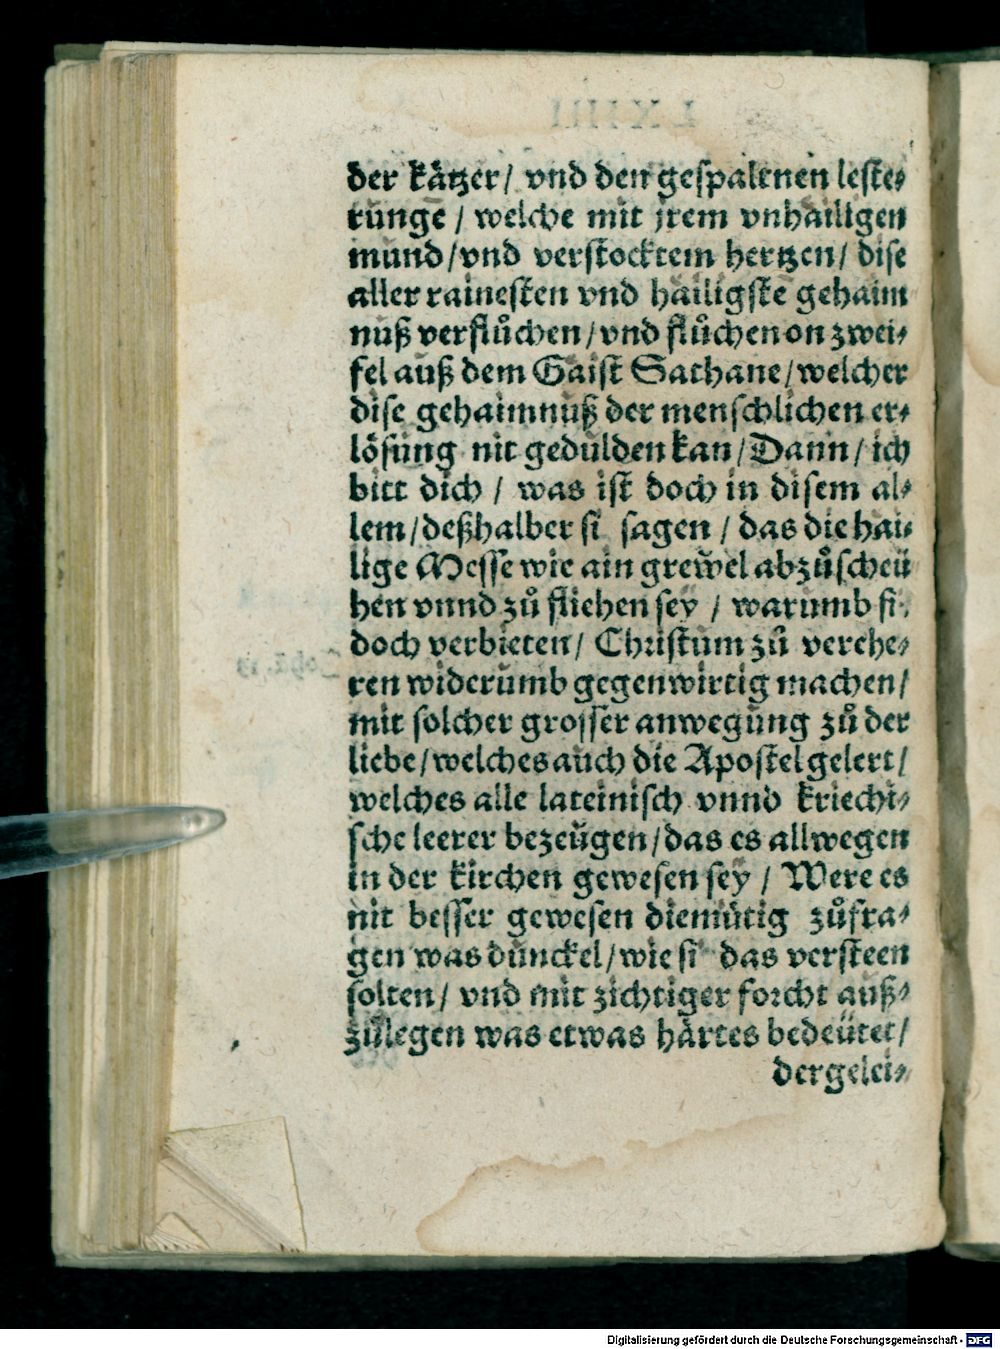 der kåtzer/ vnd den gespaltnen leste⸗
runge / welche mit jrem vnhailigen
mund/vnd verstocktem hertzen/ dise
aller rainesten vnd hailigste gehaim
nuß verflůchen/vnd flůchen on zwei⸗
fel auß dem Gaist Sathane/welcher
dise gehaimnuß der menschlichen er⸗
lösung nit gedulden kan/Dann/ich
bitt dich / was ist doch in disem al⸗
lem/deßhalber si sagen / das die hai⸗
lige Messe wie ain grewel abzůscheü
hen vnnd zů fliehen sey / warumb si
doch verbieten/ Christum zů verehe⸗
ren widerumb gegenwirtig machen/
mit solcher grosser anwegung zů der
liebe/welches auch die Apostel gelert/
welches alle lateinisch vnnd kriechi⸗
sche leerer bezeügen/das es allwegen
in der kirchen gewesen sey / Were es
nit besser gewesen diemütig zůfra⸗
gen was dunckel/wie si das versteen
solten/ vnd mit zichtiger forcht auß⸗
zůlegen was etwas hårtes bedeütet/
dergelei⸗
Digitalisierung gefördert durch die Deutsche Forschungsgemeinschaft - DFG